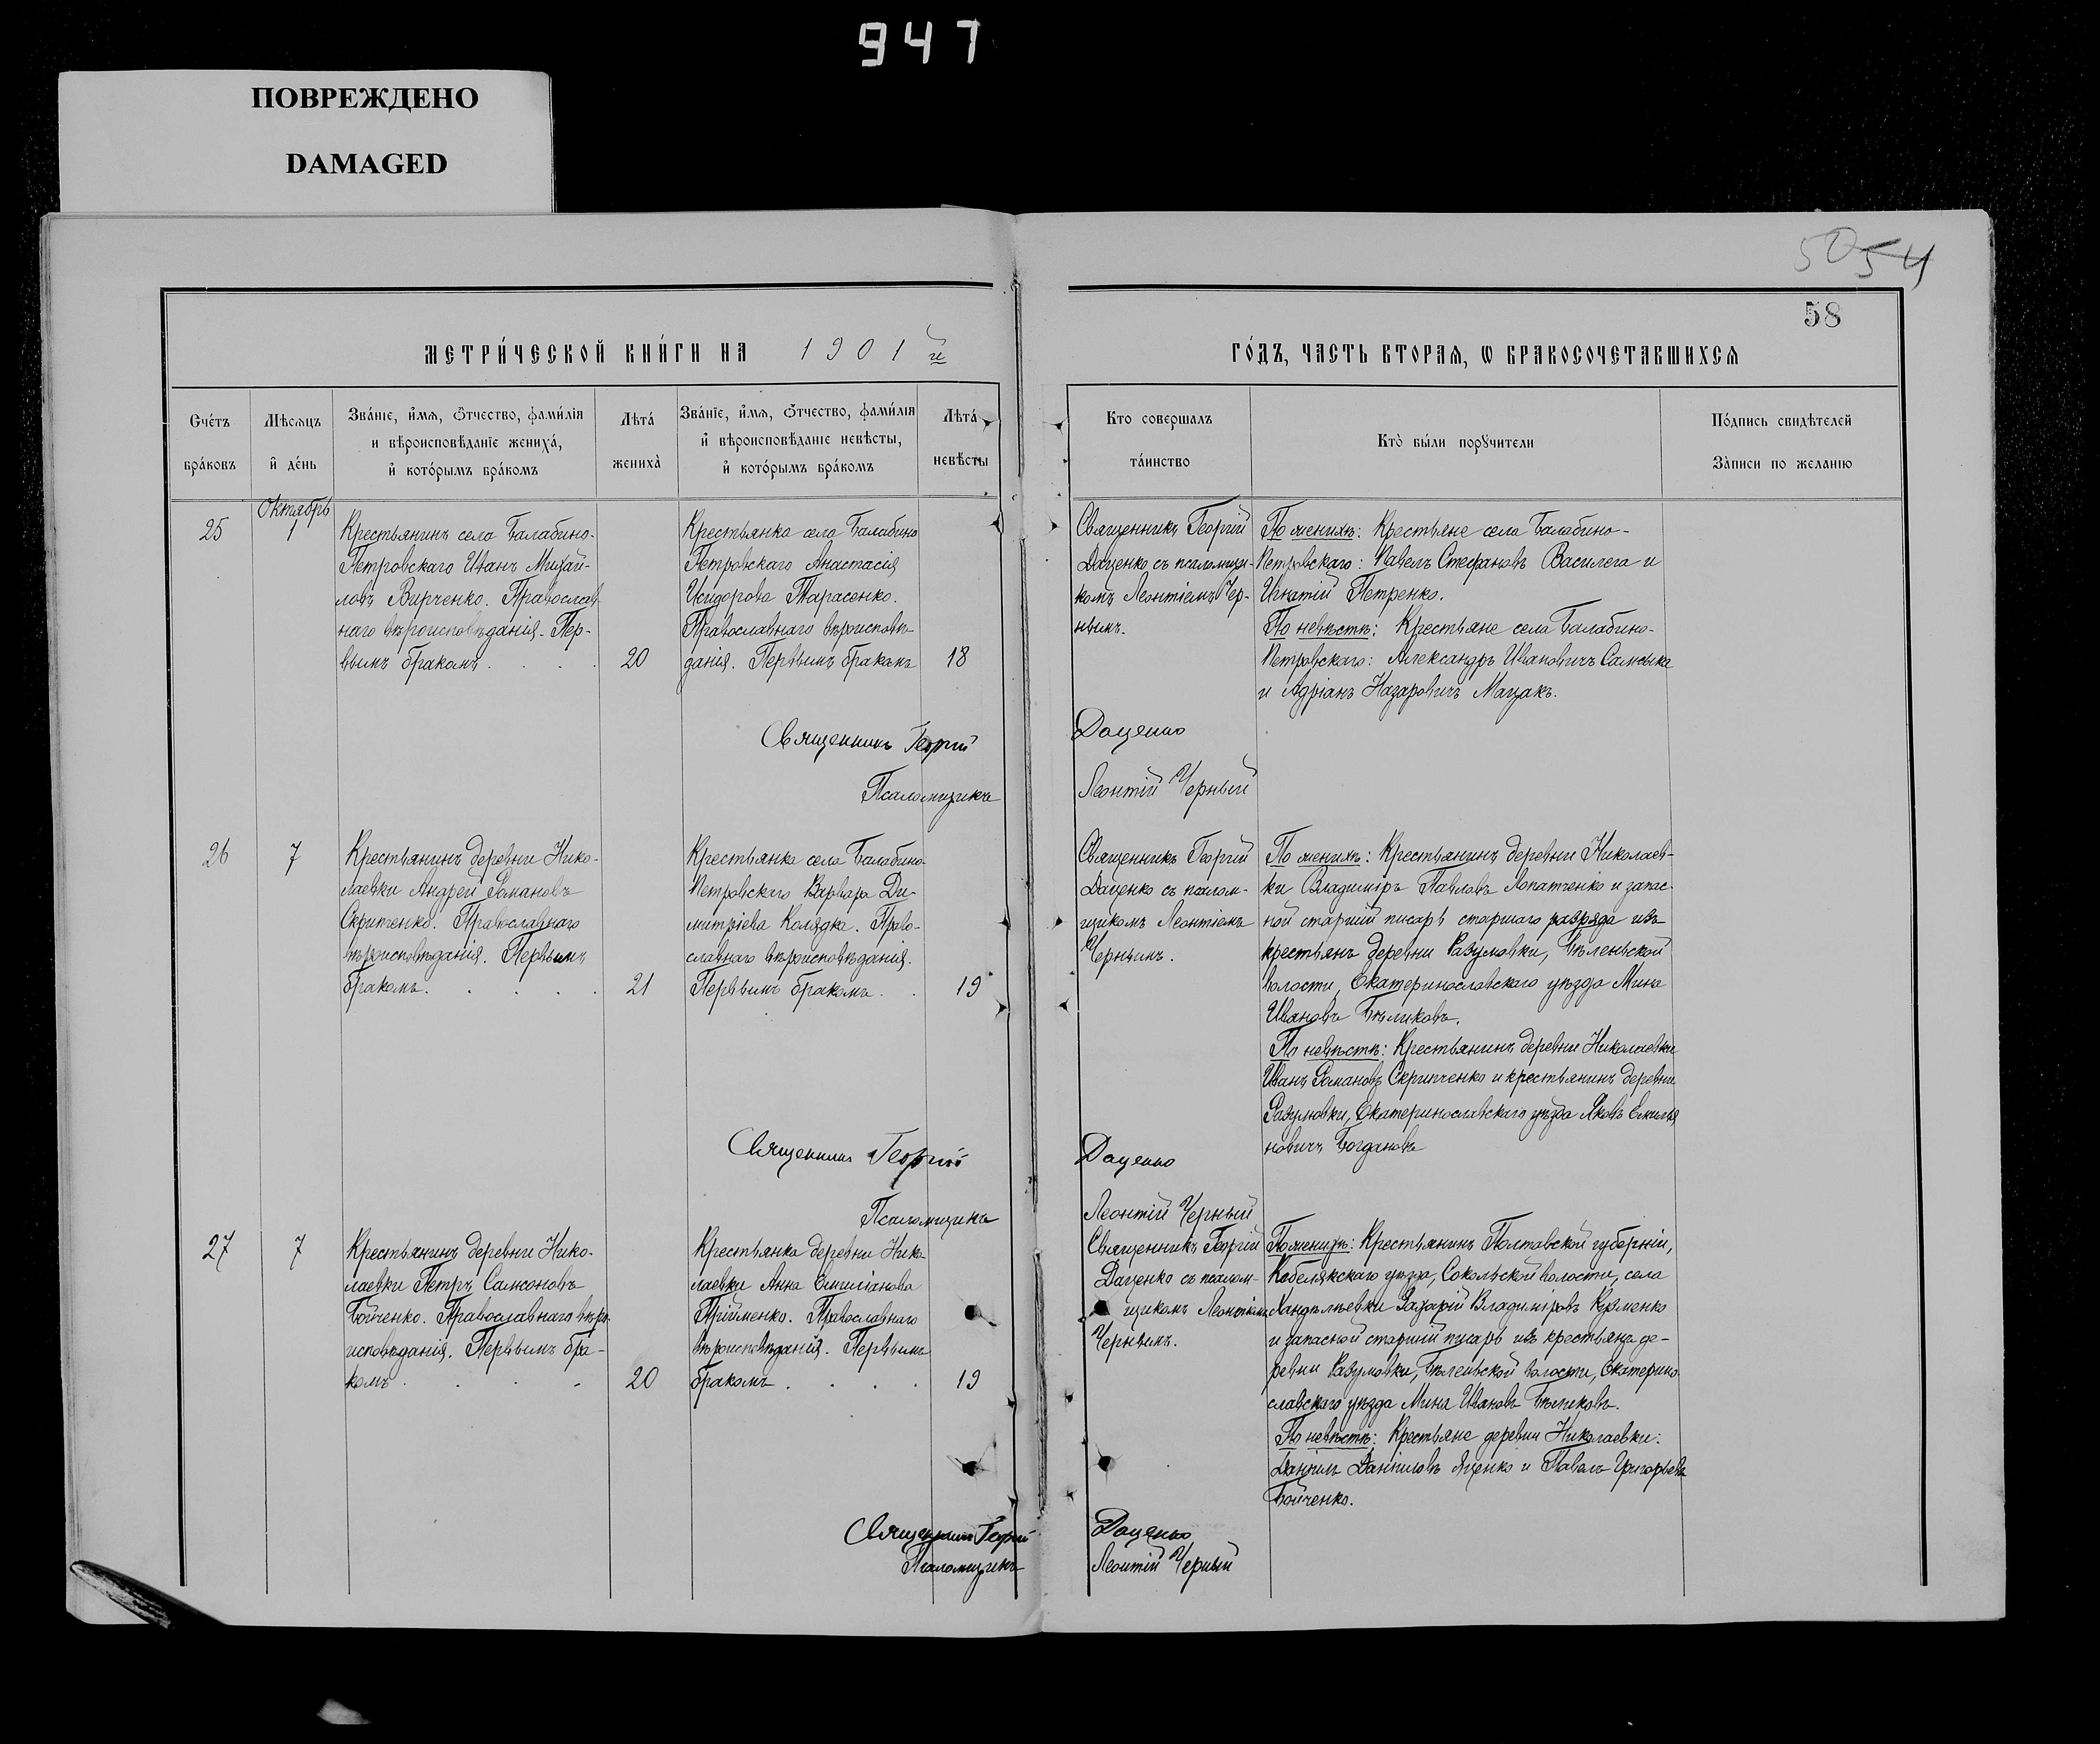 947
ПОВРЕЖДЕНО
DAMAGED
5054
58
МЕТРИ́ЧЕСКОЙ КНИ́ГИ НА 1901 й
ГО́ДЪ, ЧАСТЬ ВТОРАѦ, Ѡ БРАКОСОЧЕТАВШИХСѦ
Сче́тъ
бра́ковъ
Мѣсѧцъ
и де́нь
Зва́нїе, и́мѧ, ѻ́тчество, фами́лїѧ
и вѣроисповѣ́данїе жениха́,
и кото́рымъ бра́комъ
Лѣта́
жениха̀
Зва́нїе, и́мѧ, ѻ́тчество, фами́лїѧ
и вѣроисповѣ́данїе невѣ́сты,
и кото́рымъ бра́комъ
Лѣта́
невѣ́сты
Кто совершалъ
та́инство
Кто̀ бы́ли порꙋчители
По́дпись свидѣ́телей
За̀писи по желанїю
Октябрь
25
1
Крестьянинъ села Балабино-
Петровскаго Иванъ Михай-
ловъ Вирченко. Православ-
наго вѣроисповѣданія. Пер-
вымъ бракомъ . . .
20
Крестьянка села Балабино
Петровскаго Анастасія
Исидорова Тарасенко.
Православнаго вѣроисповѣ-
данія. Первымъ бракомъ
18
Священникъ Георгій
Даценко съ псаломщи-
комъ Леонтіемъ Чер-
нымъ.
По женихѣ: Крестьяне села Балабино-
Петровскаго: Павелъ Стефановъ Василега и
Игнатій Петренко.
По невѣстѣ: Крестьяне села Балабино-
Петровскаго: Александръ Ивановичъ Самсыка
и Адріанъ Назаровичъ Мацакъ.
Священникъ Георгій Даценко
Псаломщикъ Леонтій Черный
26
7
Крестьянинъ деревни Нико-
лаевки Андрей Романовъ
Скрипченко. Православнаго
вѣроисповѣданія. Первымъ
бракомъ. . . . .
21
Крестьянка села Балабино-
Петровскаго Варвара Ди-
митріева Колядка. Право-
славнаго вѣроисповѣданія.
Первымъ бракомъ . .
19
Священникъ Георгій
Даценко съ псалом-
щикомъ Леонтіемъ
Чернымъ.
По женихѣ: Крестьянинъ деревни Николаев-
ки Владиміръ Павловъ Лопатченко и запас-
ной старшій писарь старшаго разряда изъ
крестьянъ деревни Разумовки, Бѣленьской
волости, Екатеринославскаго уѣзда Мина
Ивановъ Бѣликовъ.
По невѣстѣ: Крестьянинъ деревни Николаевки
Иванъ Романовъ Скрипченко и крестьянинъ деревни
Разумовки, Екатеринославскаго уѣзда Яковъ Емилья
новичъ Богдановъ
Священникъ Георгій Даценко
Псаломщикъ Леонтій Черный
27
7
Крестьянинъ деревни Нико-
лаевки Петръ Самсоновъ
Бойченко. Православнаго вѣро-
исповѣданія. Первымъ бра-
комъ . . . .
20
Крестьянка деревни Нико
лаевки Анна Емиліанова
Прійменко. Православнаго
вѣроисповѣданія. Первымъ
бракомъ . . . .
19
Священникъ Георгій
Даценко съ псалом-
щикомъ Леонтіемъ
Чернымъ.
По женихѣ: Крестьянинъ Полтавской губерніи,
Кобелякскаго уѣзда, Сокольской волости, села
Хандѣлѣевки Захарій Владиміровъ Кузменко
и запасной старшій писарь изъ крестьянъ де-
ревни Разумовки, Бѣленьской волости, Екатерино-
славскаго уѣзда Мина Ивановъ Бѣликовъ.
По невѣстѣ: Крестьяне деревни Николаевки:
Даніилъ Данииловъ Яценко и Павелъ Григорьевъ
Бойченко.
Священникъ Георгій Даценко
Псаломщикъ Леонтій Черный